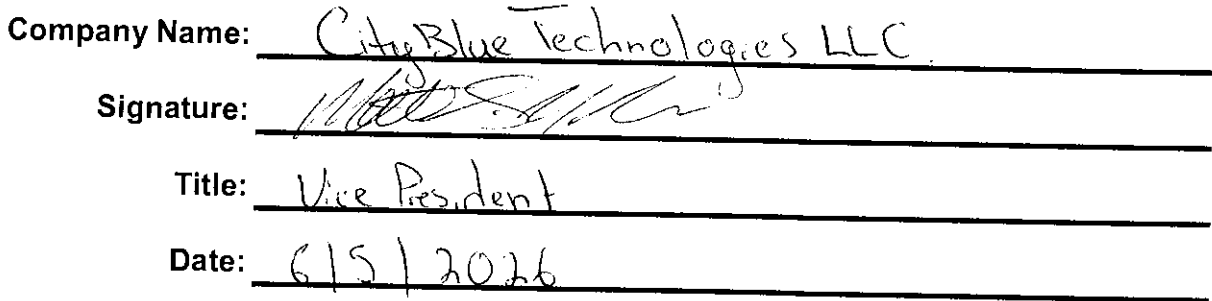 Company Name: CityBlue Technologies LLC
Signature:
Title: Vice President
Date: 6/5/2026